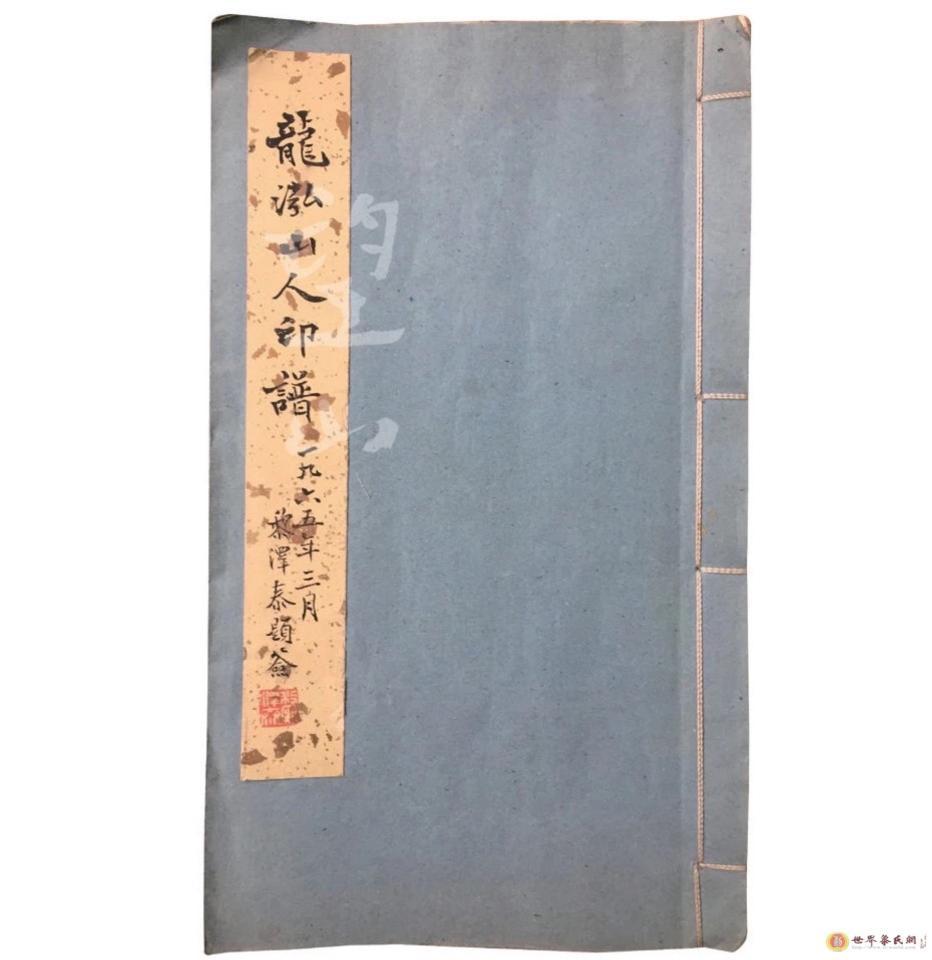 龍泓山人印譜
一九六五年三月
黎澤泰題簽
望山
世界黎氏網